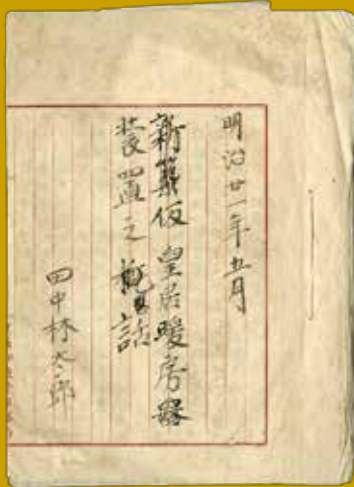 明治廿一年五月
新築仮 皇居暖房器
装置之概話
田中林太郎